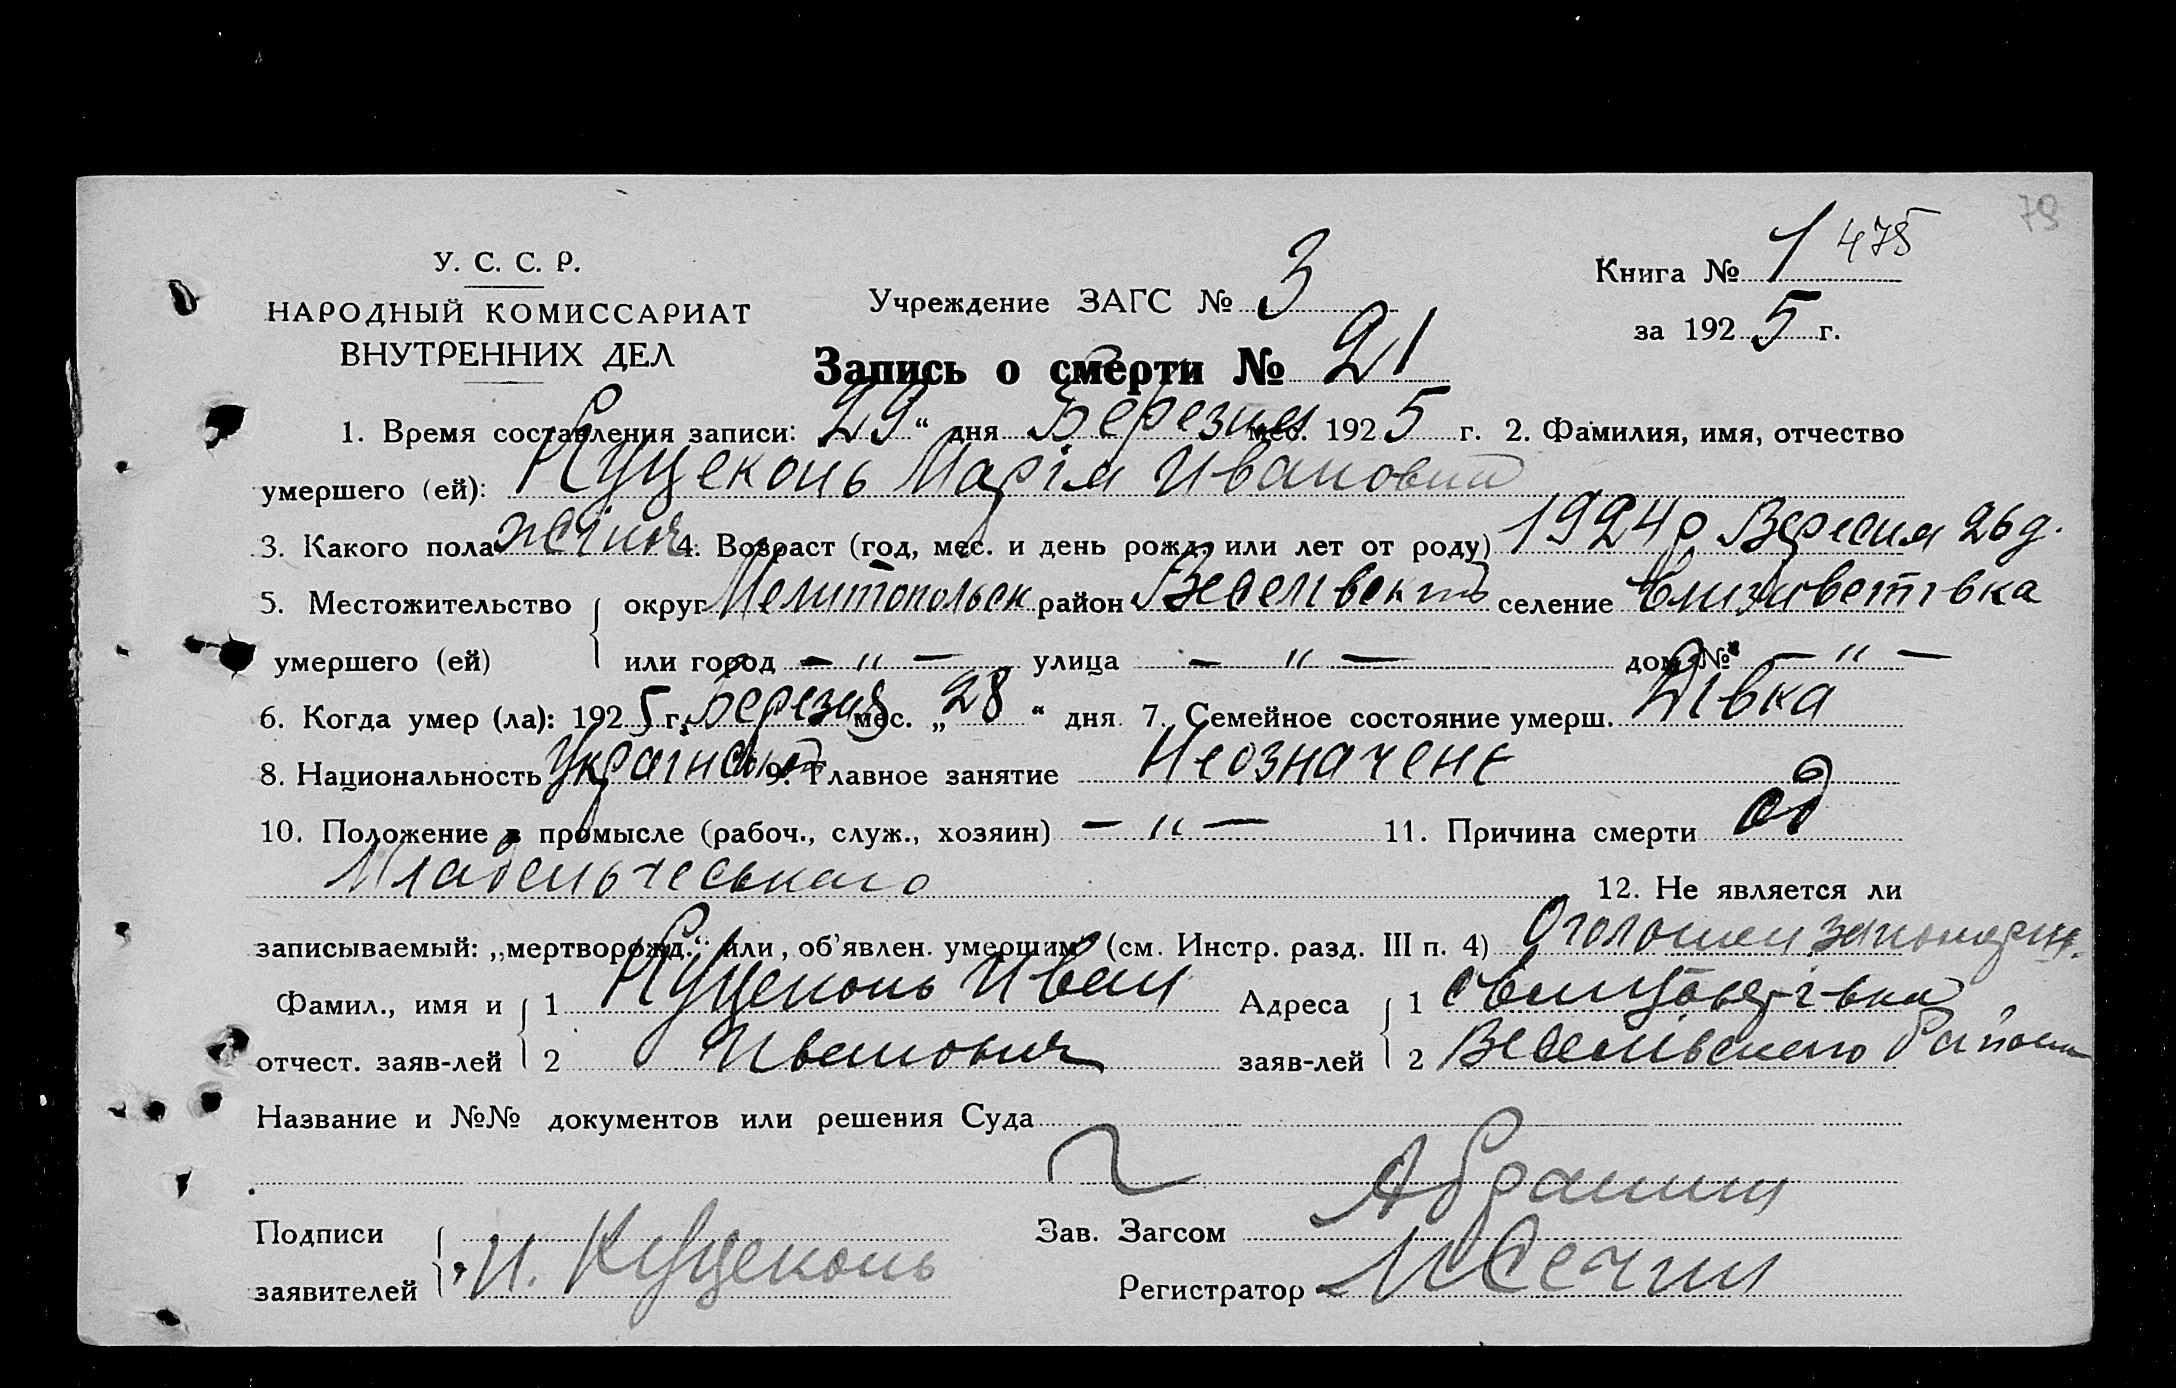 79
У. С. С. Р.
НАРОДНЫЙ КОМИССАРИАТ
ВНУТРЕННИХ ДЕЛ
Учреждение ЗАГС № 3
Книга № 1 475
за 1925 г.
Запись о смерти № 21
1. Время составления записи: 29 “ дня Березня мес. 1925 г. 2. Фамилия, имя, отчество
умершего (ей): Куцеконь Марія Ивановна
3. Какого пола жіноч. 4. Возраст (год, мес. и день рожд. или лет от роду) 1924 р Вересня 26 д.
5. Местожительство округ Мелитопольск район Веселівський селение Єлизаветівка
умершего (ей) или город — „ — улица — „ — дом № — „ —
6. Когда умер (ла): 1925 г. Березня мес. „ 28 “ дня 7. Семейное состояние умерш. Дівка
8. Национальность Українська 9. Главное занятие Неозначене
10. Положение в промысле (рабоч., служ., хозяин) — „ — 11. Причина смерти од
Младенчеського
12. Не является ли
записываемый: „мертворожд.“ или „об’явлен. умершим“ (см. Инстр. разд. III п. 4) Оголошен
Фамил., имя и 1 Куцеконь Иван Адреса 1
отчест. заяв-лей 2 Иванович заяв-лей 2 Веселівського Району
Название и №№ документов или решения Суда
Подписи Зав. Загсом
заявителей И. Куцеконь Регистратор